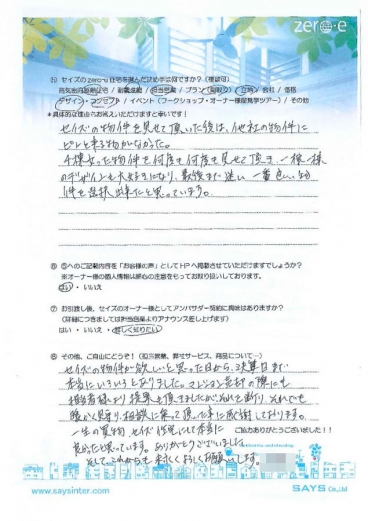 zero-e
⑤ セイズのzero-e住宅を選んだ決め手は何ですか?(複数可)
高気密高断熱住宅 / 耐震性能 / 担当営業 / プラン(間取り) / 立地 / 会社 / 価格
デザイン・コンセプト / イベント(ワークショップ・オーナー様宅見学ツアー) / その他
*具体的な理由もお答えいただけますと幸いです!
セイズの物件を見せて頂いた後は、他社の物件に
ピンと来る物がなかった。
千棟 物件を何度も何度も見せて頂き、一棟一棟
のデザインも大好きになり、最後まで迷い 一番良い
件を選択出来たと思っています。
⑥ ⑤へのご記載内容を「お客様の声」としてHPへ掲載させていただけますでしょうか?
※オーナー様の個人情報は細心の注意をもってお取り扱いしております。
はい ・ いいえ
⑦ お引渡し後、セイズのオーナー様としてアンバサダー契約に興味はありますか?
(詳細につきましては担当営業よりアナウンス差し上げます)
はい ・ いいえ ・ 詳しく知りたい
⑧ その他、ご自由にどうぞ!(担当営業、弊社サービス、商品について…)
セイズの物件が欲しいと思った日から、決算日まで
本当にいろいろとありました。マンション売却の際にも
担当者様より提案を頂きました それでも
暖かく見守り、相談に乗って頂いた事に感謝しております。
ご協力ありがとうございました!!
一生の買物 セイズ住宅にして本当に
良かったと思っています。ありがとうございました
そして、これからも末永くよろしくお願いします。
www.saysinter.com
SAYS Co.,Ltd